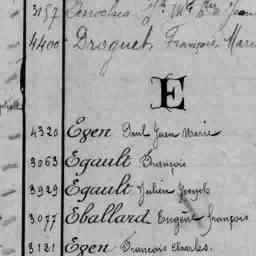 3157
4400 Droguet, François Marie
E
4320 Ezen Paul Jean Marie
3063 Egault François
3929 Egault Julien Joseph
3077 Eballard Eugène François
3121 Ezen François Charles.